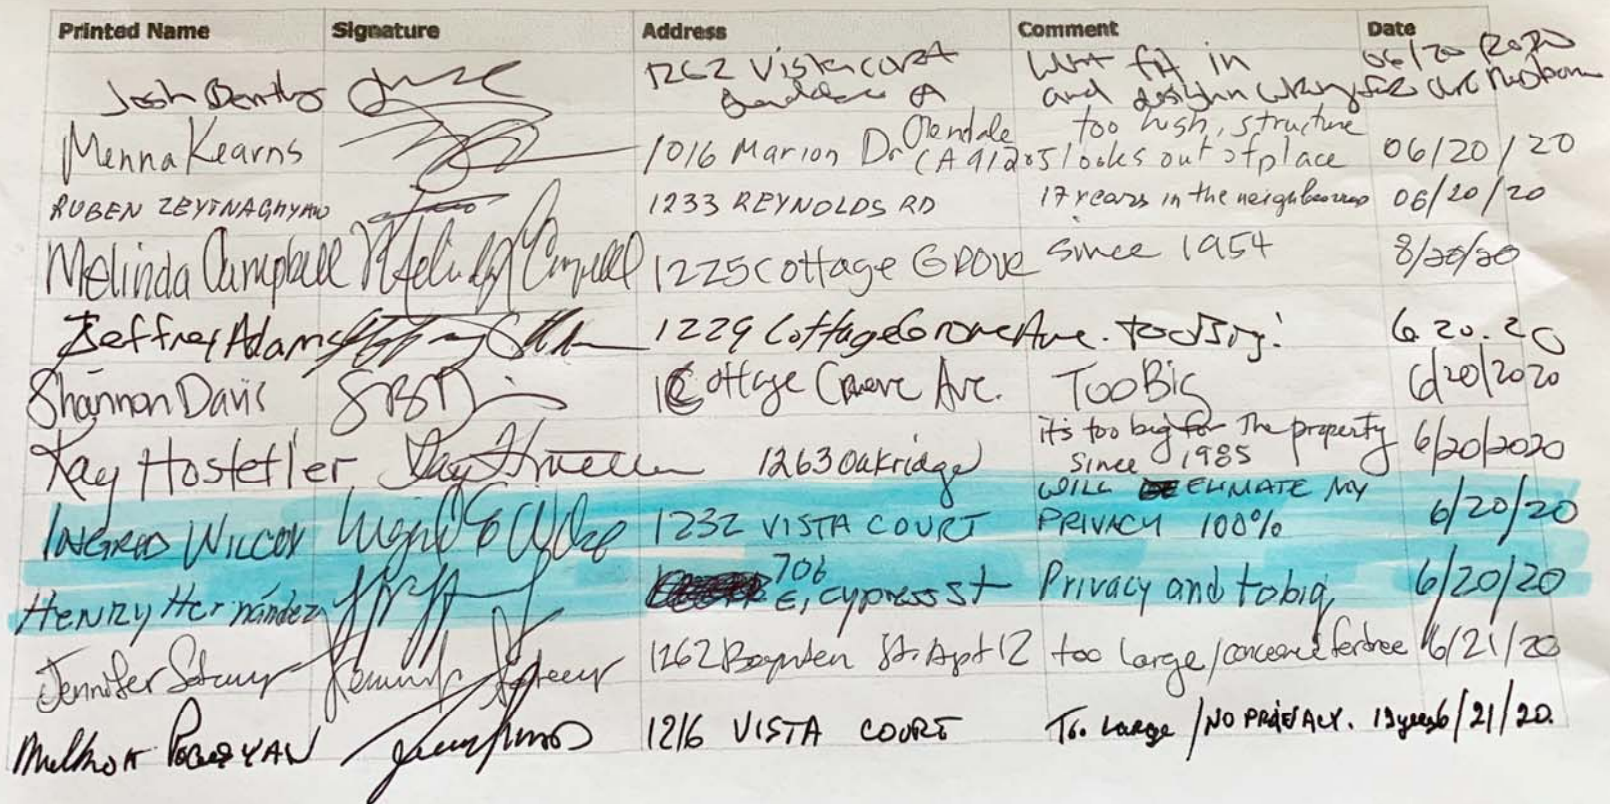 Printed Name Signature Address Comment Date
Josh 1262 Vista court fit in 06/20 2020
and design wrong for
Menna Kearns 1016 Marion Dr Glendale CA 91205 too high, structure looks out of place 06/20/20
RUBEN 1233 REYNOLDS RD 17 years in the 06/20/20
Melinda Campbell Melinda Campbell 1225 Cottage Grove since 1954 8/20/20
Jeffrey Adams 1229 Cottage Grove Ave. too Big! 6.20.20
Shannon Davis Cottage Grove Ave. Too Big 6/20/2020
Kay Hostetler 1263 Oakridge it's too big for The property since 1985 6/20/2020
INGRID WILCOX 1232 VISTA COURT WILL ELIMATE MY PRIVACY 100% 6/20/20
Henry Hernández 706 E, cypress st Privacy and to big 6/20/20
Jennifer 1262 Boynton St. Apt 12 too large / 6/21/20
1216 VISTA COURT Too Large / NO 6/21/20.